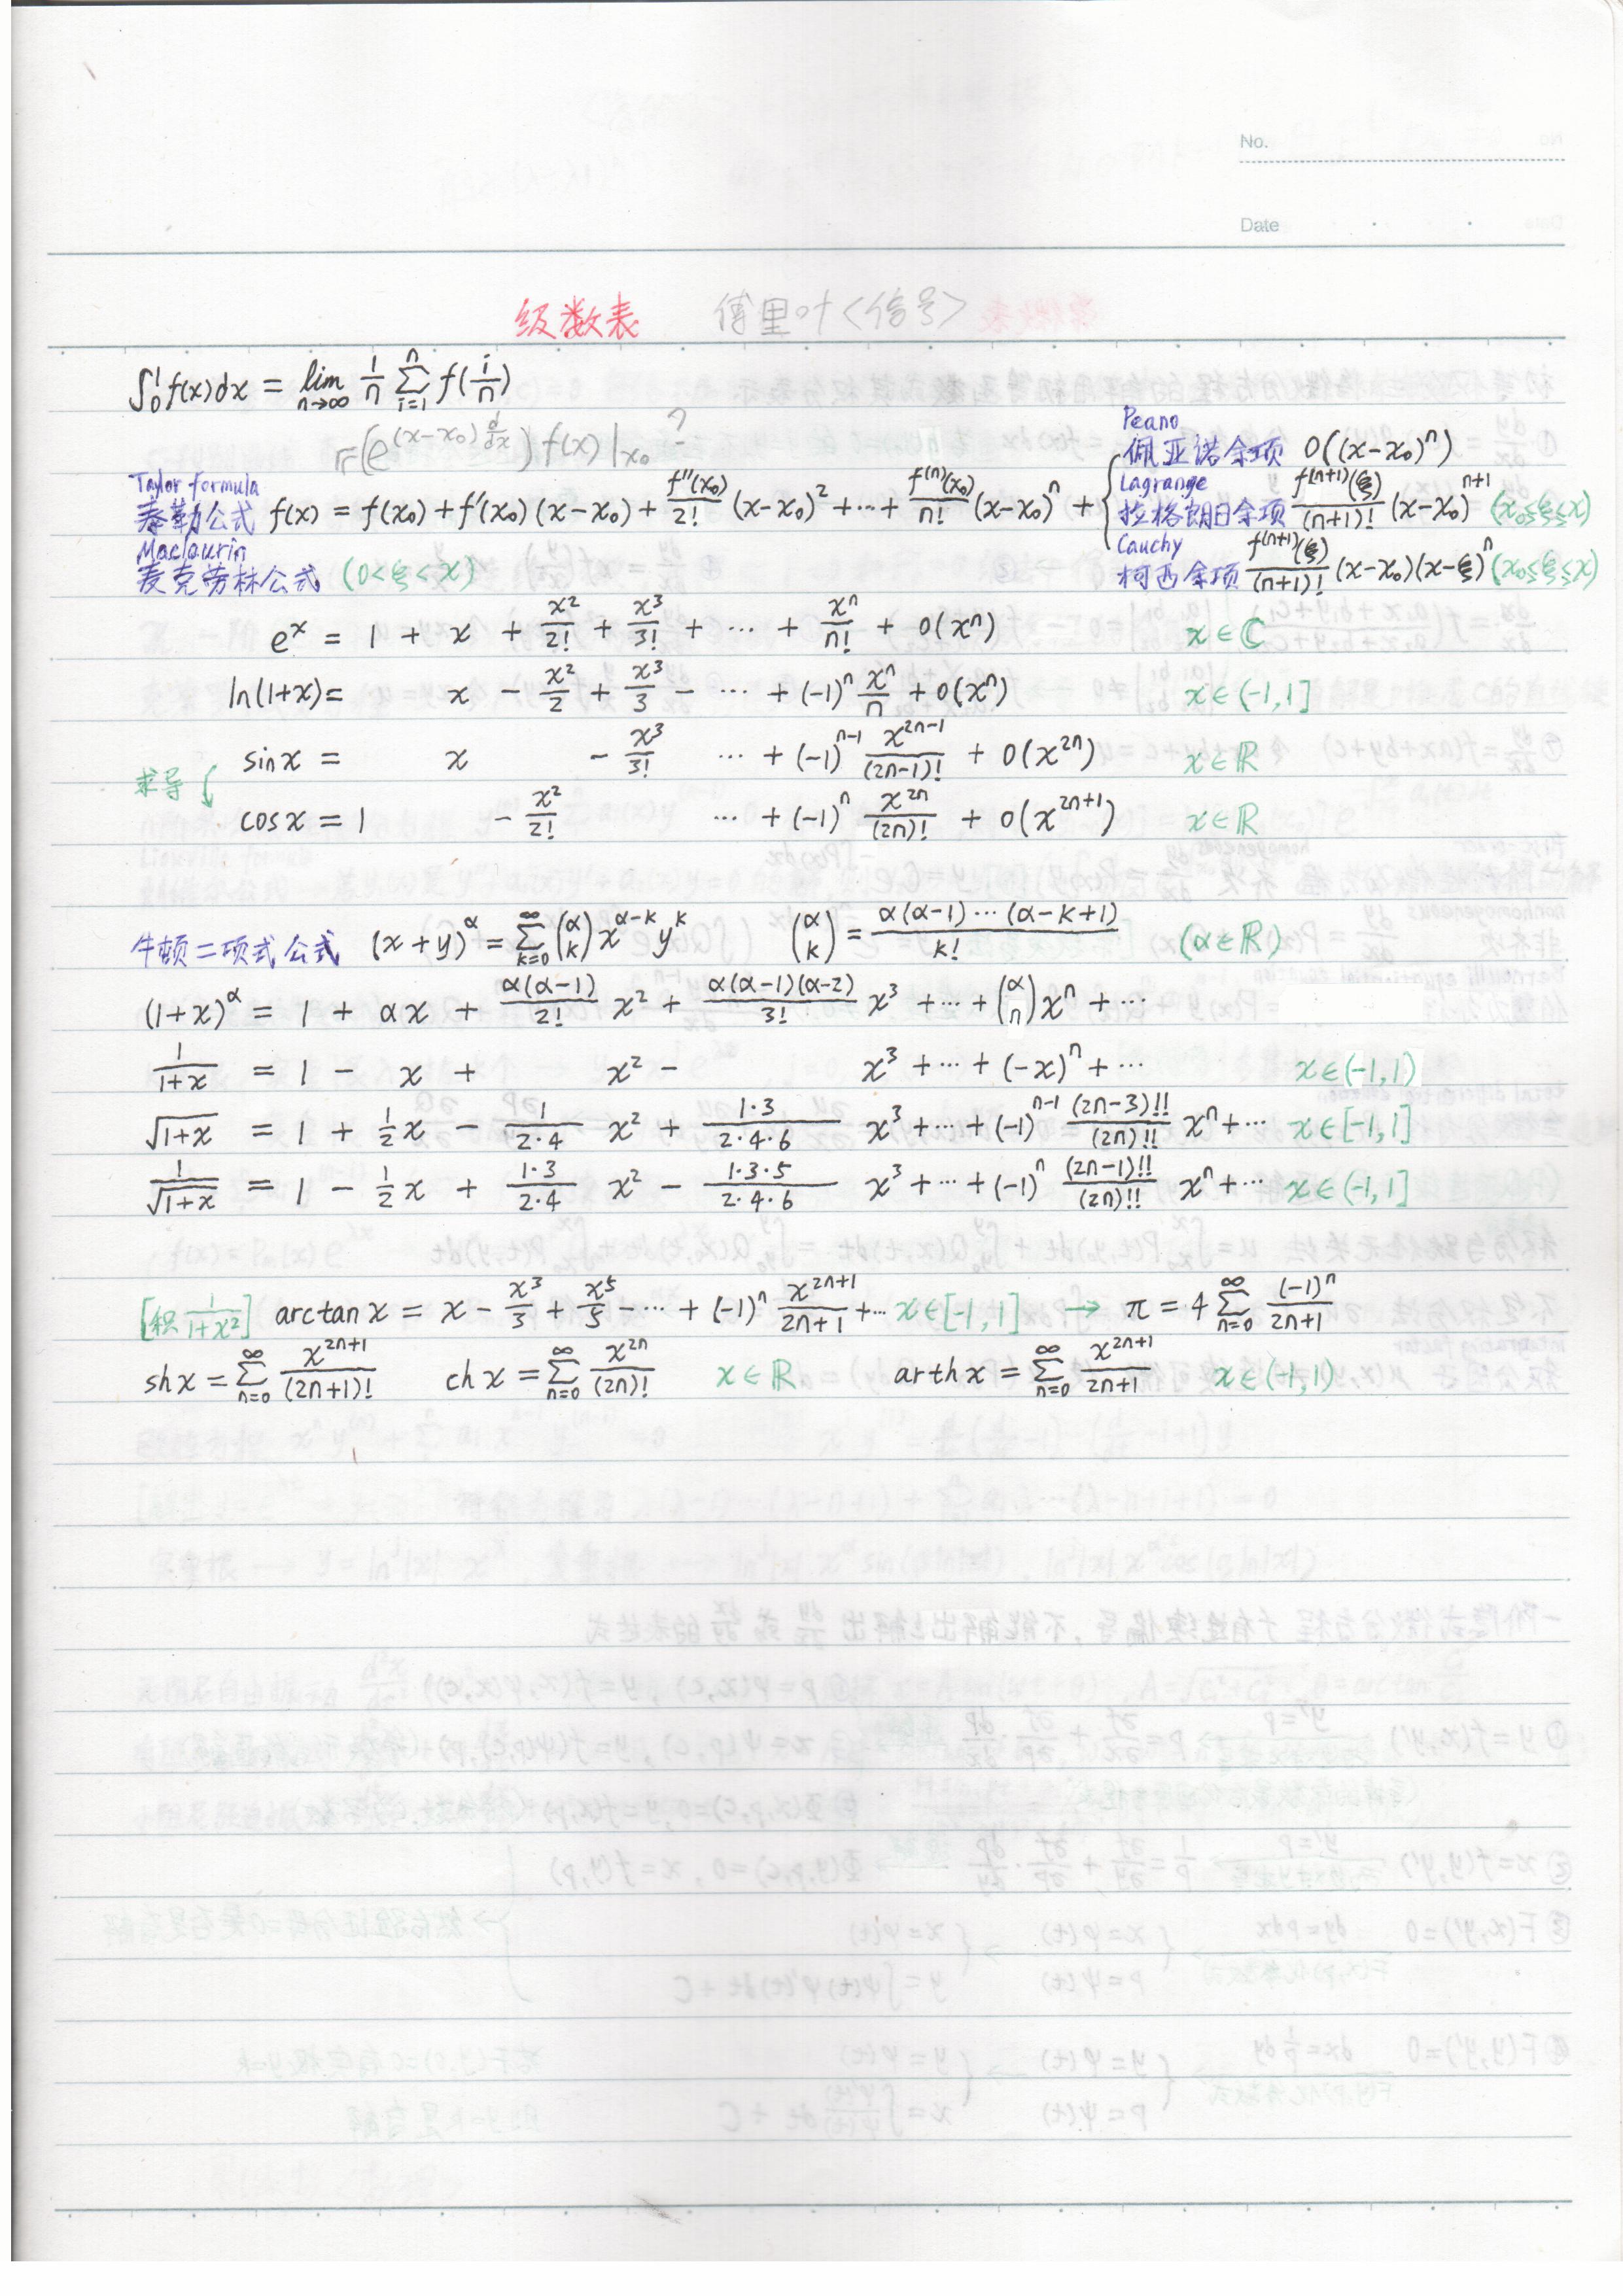 No.
Date
级数表 傅里叶<信号>
∫₀¹ f(x)dx = lim_{n→∞} 1/n ∑_{i=1}^{n} f(i/n)
(e^{(x-x₀) d/dx}) f(x)|_{x₀} ?
Peano
佩亚诺余项 o((x-x₀)^n)
Taylor formula
泰勒公式 f(x) = f(x₀) + f'(x₀)(x-x₀) + f''(x₀)/2! (x-x₀)² + ⋯ + f^{(n)}(x₀)/n! (x-x₀)^n + {
Lagrange
拉格朗日余项 f^{(n+1)}(ξ)/(n+1)! (x-x₀)^{n+1} (x₀≤ξ≤x)
Maclaurin
麦克劳林公式 (0<ξ<x)
Cauchy
柯西余项 f^{(n+1)}(ξ)/(n+1)! (x-x₀)(x-ξ)^n (x₀≤ξ≤x)
e^x = 1 + x + x²/2! + x³/3! + ⋯ + x^n/n! + o(x^n) x∈ℂ
ln(1+x) = x - x²/2 + x³/3 - ⋯ + (-1)^n x^n/n + o(x^n) x∈(-1,1]
sinx = x - x³/3! ⋯ + (-1)^{n-1} x^{2n-1}/(2n-1)! + o(x^{2n}) x∈ℝ
求导
cosx = 1 - x²/2! ⋯ + (-1)^n x^{2n}/(2n)! + o(x^{2n+1}) x∈ℝ
牛顿二项式公式 (x+y)^α = ∑_{k=0}^{∞} (α k) x^{α-k} y^k (α k) = α(α-1)⋯(α-k+1)/k! (α∈ℝ)
(1+x)^α = 1 + αx + α(α-1)/2! x² + α(α-1)(α-2)/3! x³ + ⋯ + (α n) x^n + ⋯
1/(1+x) = 1 - x + x² - x³ + ⋯ + (-x)^n + ⋯ x∈(-1,1)
√(1+x) = 1 + 1/2 x - 1/(2·4) x² + 1·3/(2·4·6) x³ + ⋯ + (-1)^{n-1} (2n-3)!!/(2n)!! x^n + ⋯ x∈[-1,1]
1/√(1+x) = 1 - 1/2 x + 1·3/(2·4) x² - 1·3·5/(2·4·6) x³ + ⋯ + (-1)^n (2n-1)!!/(2n)!! x^n + ⋯ x∈(-1,1]
[积 1/(1+x²)] arctan x = x - x³/3 + x⁵/5 - ⋯ + (-1)^n x^{2n+1}/(2n+1) + ⋯ x∈[-1,1] → π = 4 ∑_{n=0}^{∞} (-1)^n/(2n+1)
sh x = ∑_{n=0}^{∞} x^{2n+1}/(2n+1)! ch x = ∑_{n=0}^{∞} x^{2n}/(2n)! x∈ℝ arth x = ∑_{n=0}^{∞} x^{2n+1}/(2n+1) x∈(-1,1)